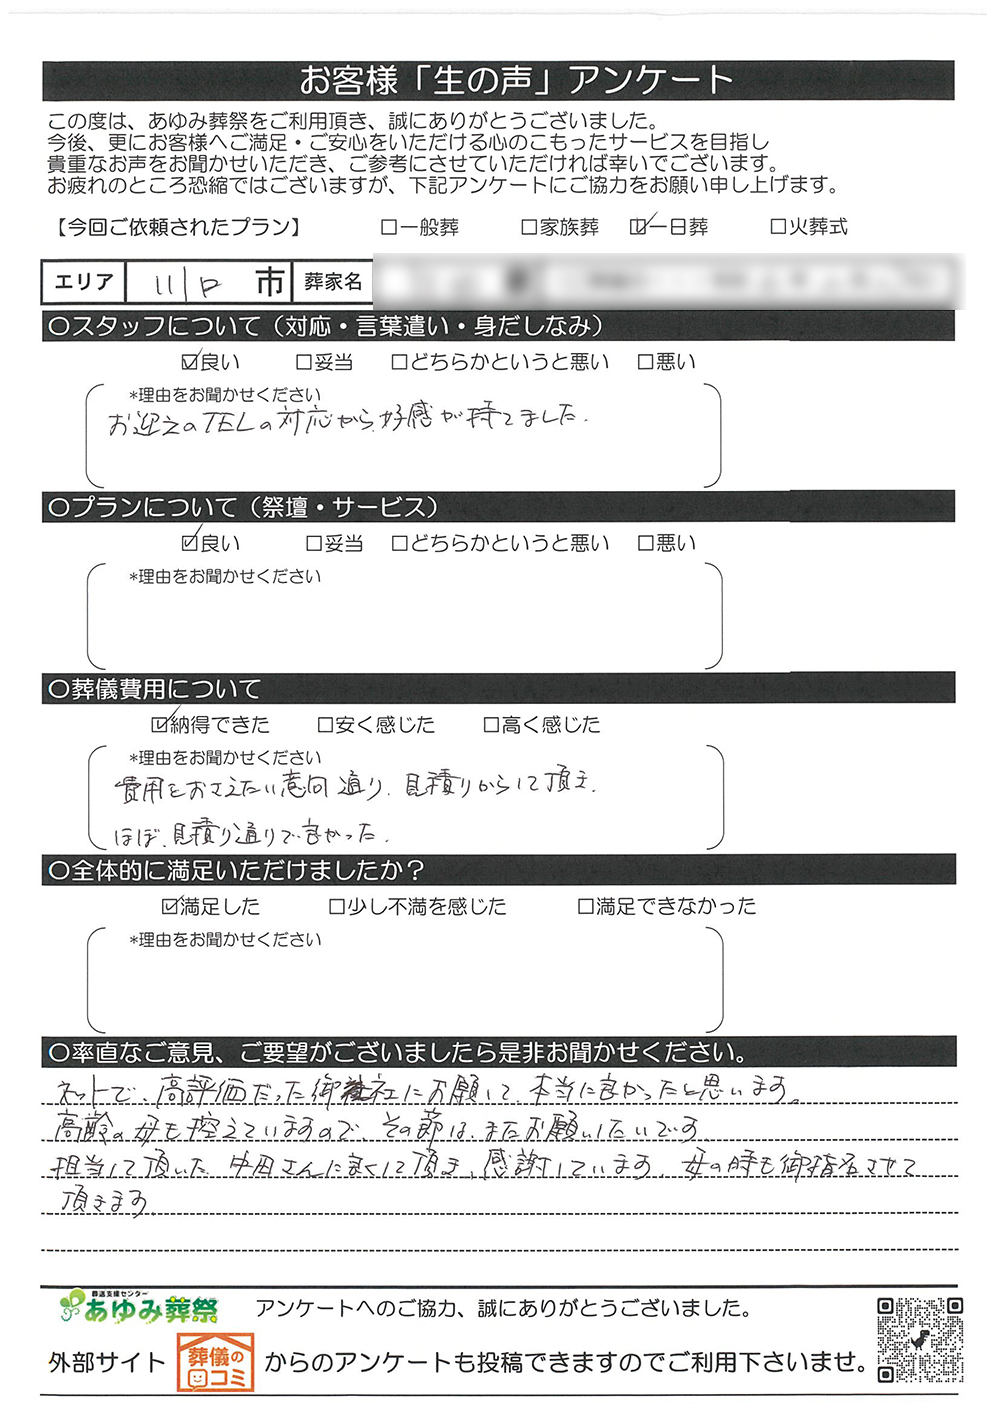 お客様「生の声」アンケート
この度は、あゆみ葬祭をご利用頂き、誠にありがとうございました。
今後、更にお客様へご満足・ご安心をいただける心のこもったサービスを目指し
貴重なお声をお聞かせいただき、ご参考にさせていただければ幸いでございます。
お疲れのところ恐縮ではございますが、下記アンケートにご協力をお願い申し上げます。
【今回ご依頼されたプラン】 □一般葬 □家族葬 ☑一日葬 □火葬式
エリア 川口 市 葬家名
〇スタッフについて（対応・言葉遣い・身だしなみ）
☑良い □妥当 □どちらかというと悪い □悪い
*理由をお聞かせください
お迎えのTELの対応から、好感が持てました.
〇プランについて（祭壇・サービス）
☑良い □妥当 □どちらかというと悪い □悪い
*理由をお聞かせください
〇葬儀費用について
☑納得できた □安く感じた □高く感じた
*理由をお聞かせください
費用をおさえたい意向通り、見積りからして頂き、
ほぼ、見積り通りで良かった.
〇全体的に満足いただけましたか？
☑満足した □少し不満を感じた □満足できなかった
*理由をお聞かせください
〇率直なご意見、ご要望がございましたら是非お聞かせください。
ネットで、高評価だった御社にお願いして、本当に良かったと思います。
高齢の母も控えていますので、その節は、またお願いしたいです。
担当して頂いた、中田さんに良くして頂き、感謝しています。母の時も御指名させて
頂きます。
葬送支援センター
あゆみ葬祭 アンケートへのご協力、誠にありがとうございました。
外部サイト 葬儀の口コミ からのアンケートも投稿できますのでご利用下さいませ。